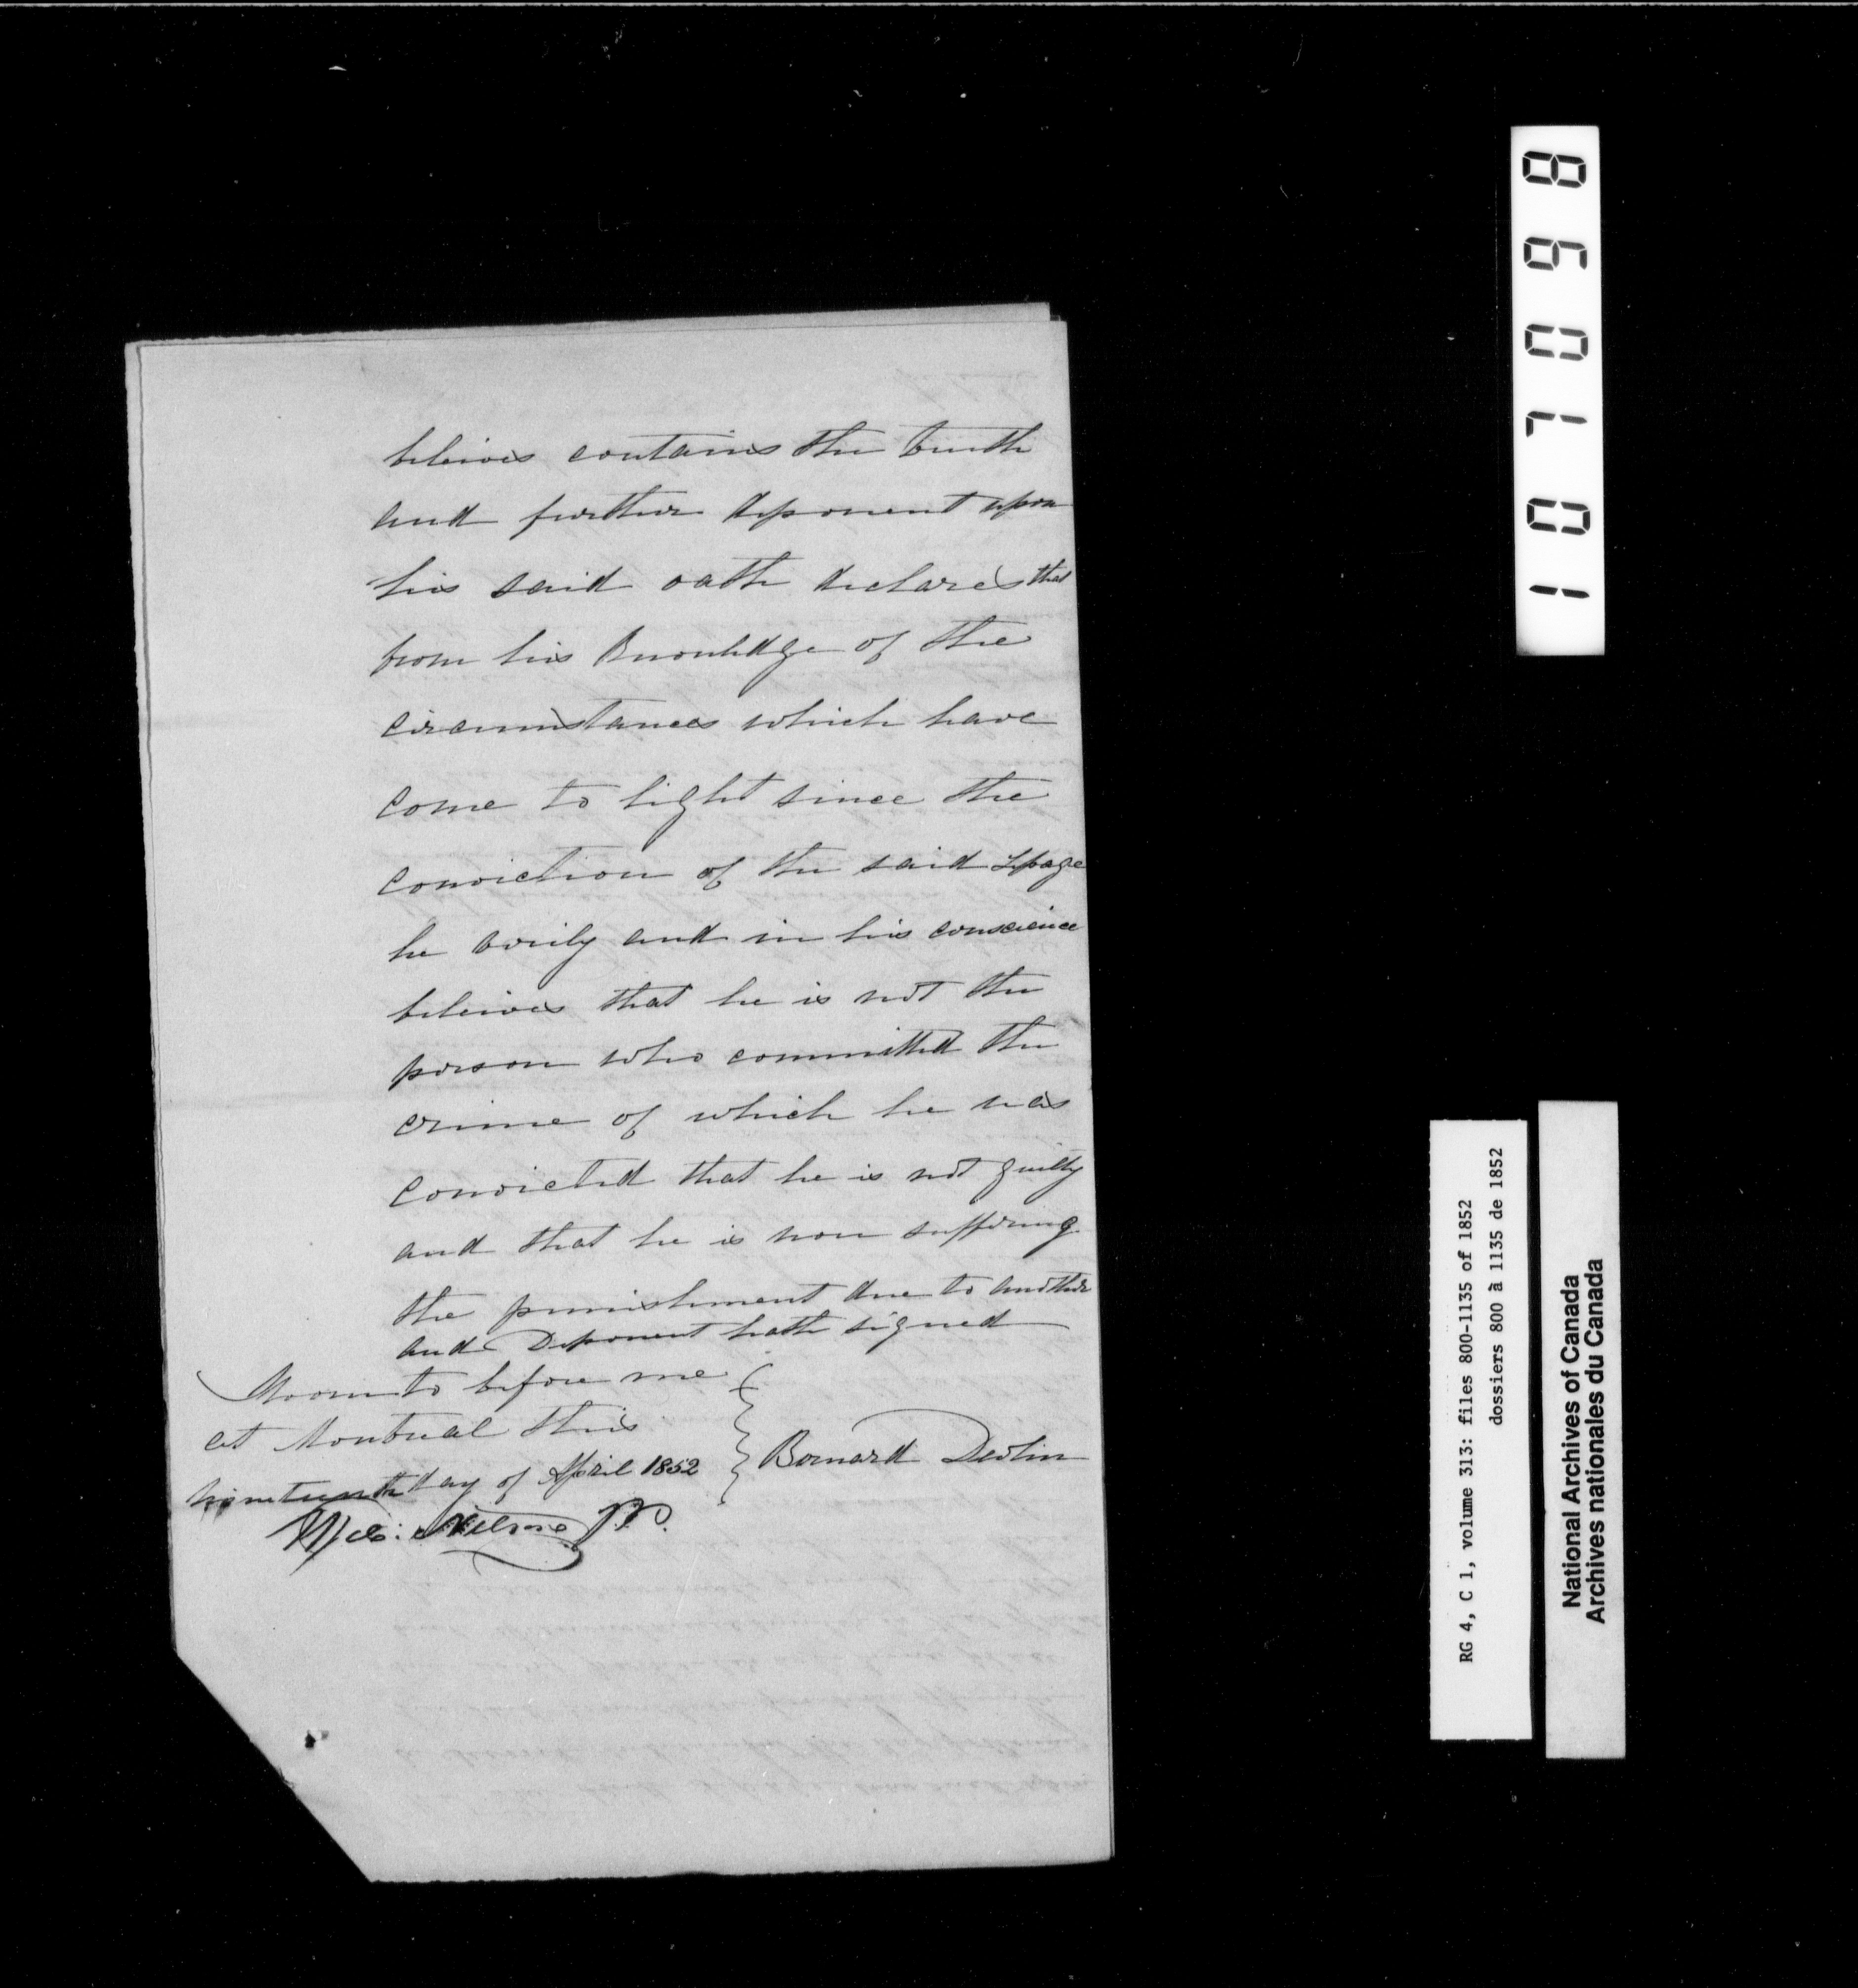 beleives contains the truth
and further deponent upon
his said oath declares that
from his Knowledge of the
circumstances which have
come to light since the
conviction of the said Lepage
he verily and in his conscience
beleives that he is not the
person who committed the
crime of which he was
convicted that he is not guilty
and that he is now suffering
the punishment due to another
and Deponent hath signed
Sworn to before me
at Montreal this
nineteenth day of April 1852
Bernard Devlin
Nelson J.P.
107098
RG 4, C 1, volume 313: files 800-1135 of 1852
dossiers 800 à 1135 de 1852
National Archives of Canada
Archives nationales du Canada